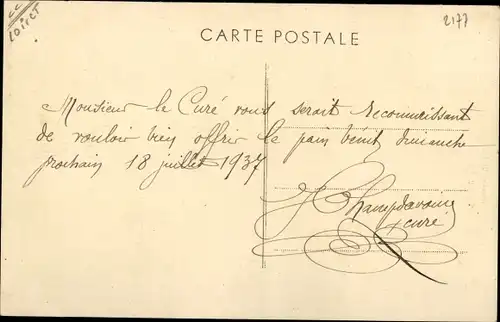 LOIRET
2177
CARTE POSTALE
Monsieur le Curé vous serait reconnaissant
de vouloir bien offrir le pain bénit dimanche
prochain 18 juillet 1937
curé